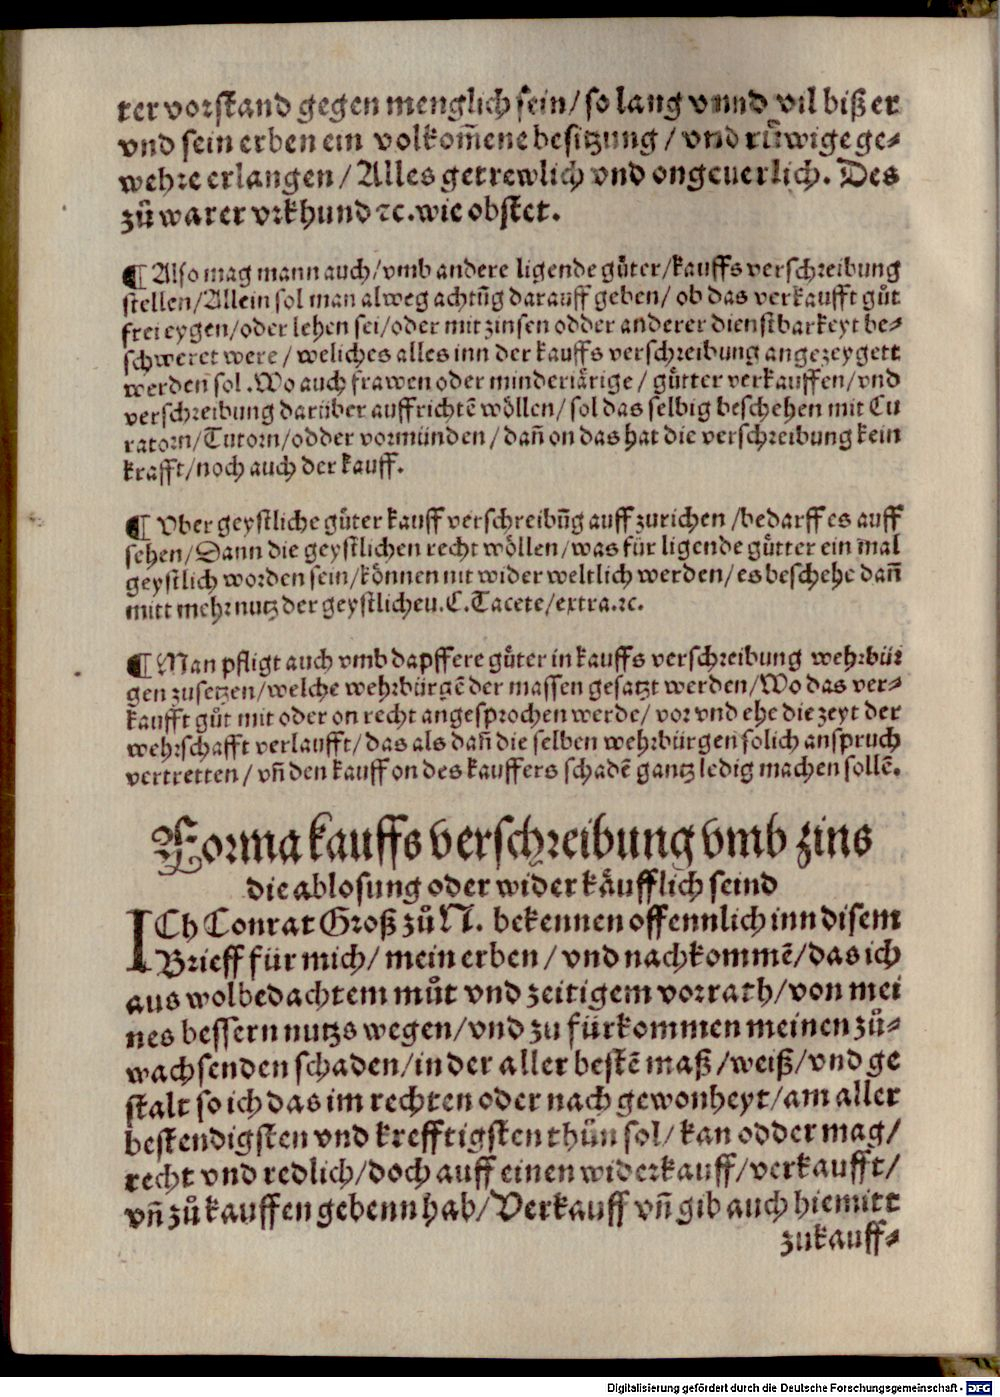 rer vorstand gegen menglich sein/ so lang vnnd vil biß er
vnd sein erben ein volkom̃ene besitzung / vnd růwige ge-
wehre erlangen / Alles getrewlich vnd ongeuerlich. Des
zů warer vrkhund ꝛc. wie obstet.
¶ Also mag mann auch/vmb andere ligende gůter/kauffs verschreibung
stellen/Allein sol man alweg achtũg darauff geben/ ob das verkaufft gůt
frei eygen/oder lehen sei/oder mit zinsen odder anderer dienstbarkeyt be-
schweret were / weliches alles inn der kauffs verschreibung angezeygett
werden sol. Wo auch frawen oder minderiärige / gůtter verkauffen/vnd
verschreibung darüber auffrichtẽ wöllen/ sol das selbig beschehen mit Cu
ratorn/Tutorn/odder vormünden / dañ on das hat die verschreibung kein
krafft/noch auch der kauff.
¶ Vber geystliche gůter kauff verschreibũg auff zurichen /bedarff es auff
sehen/Dann die geystlichen recht wöllen/was für ligende gůtter ein mal
geystlich worden sein/können nit wider weltlich werden/es beschehe dañ
mitt mehr nutz der geystlicheu. C. Tacete/extra. ꝛc.
¶ Man pfligt auch vmb dapffere gůter in kauffs verschreibung wehrbür
gen zusetzen/welche wehrbürgẽ der massen gesatzt werden/Wo das ver-
kaufft gůt mit oder on recht angesprochen werde/ vor vnd ehe die zeyt der
wehrschafft verlaufft/das als dañ die selben wehrbürgen solich anspruch
vertretten / vñ den kauff on des kauffers schadẽ gantz ledig machen sollẽ.
Forma kauffs verschreibung vmb zins
die ablosung oder widerkäufflich seind
ICh Conrat Groß zů N. bekennen offennlich inn disem
Brieff für mich/ mein erben / vnd nachkommẽ/das ich
aus wolbedachtem můt vnd zeitigem vorrath/von mei
nes bessern nutzs wegen/vnd zu fürkommen meinen zů-
wachsenden schaden/in der aller bestẽ maß/weiß/vnd ge
stalt so ich das im rechten oder nach gewonheyt/am aller
bestendigsten vnd krefftigsten thůn sol/ kan odder mag/
recht vnd redlich/doch auff einen widerkauff/verkaufft/
vñ zů kauffen gebenn hab/Verkauff vñ gib auch hiemitt
zukauff-
Digitalisierung gefördert durch die Deutsche Forschungsgemeinschaft - DFG